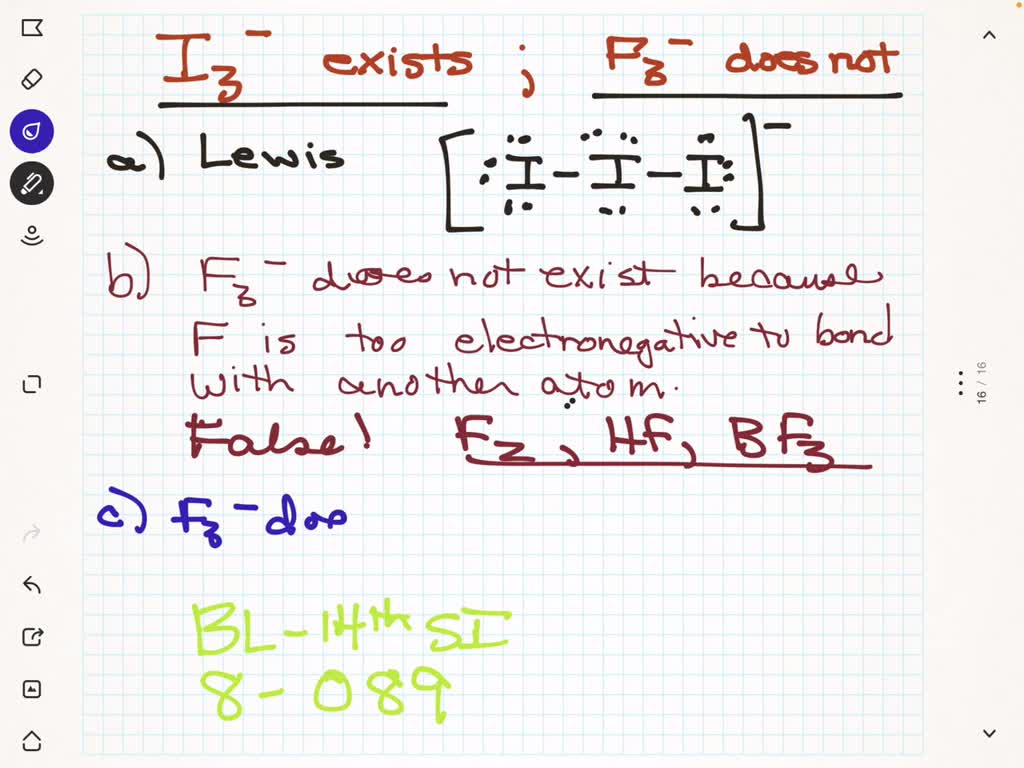 I₃⁻ exists ; F₃⁻ does not
a) Lewis [I-I-I]⁻
b) F₃⁻ does not exist because
F is too electronegative to bond
with another atom.
False! F₂, HF, BF₃
c) F₃⁻ doe
BL-14th SI
8-089
16 / 16